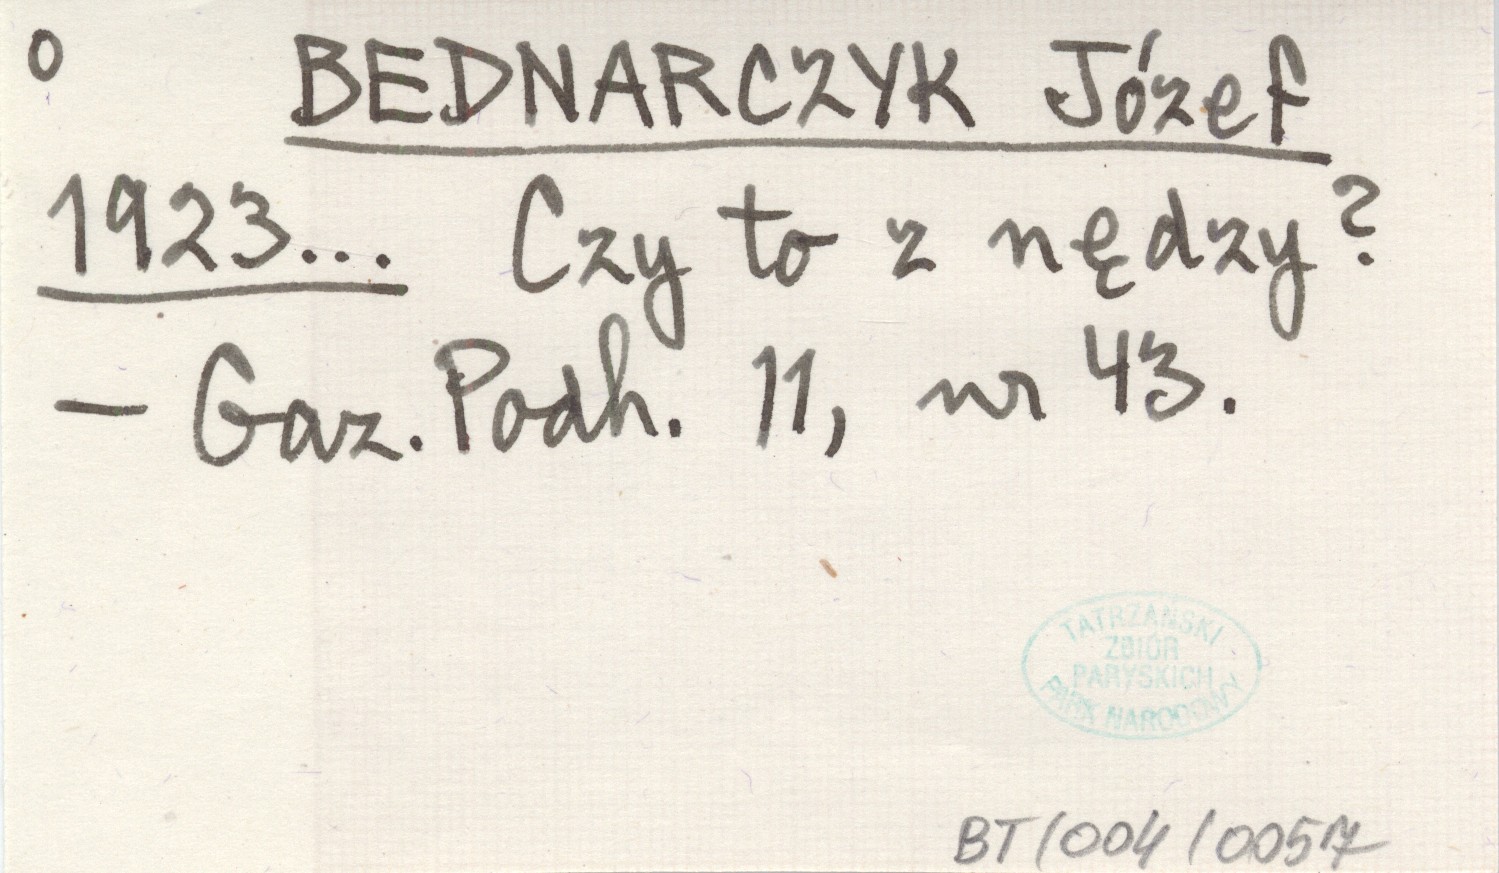 O BEDNARCZYK Józef
1923... Czy to z nędzy?
— Gaz. Podh. 11, nr 43.
TATRZAŃSKI
ZBIÓR
PARYSKICH
PARK NARODOWY
BT/004/0057